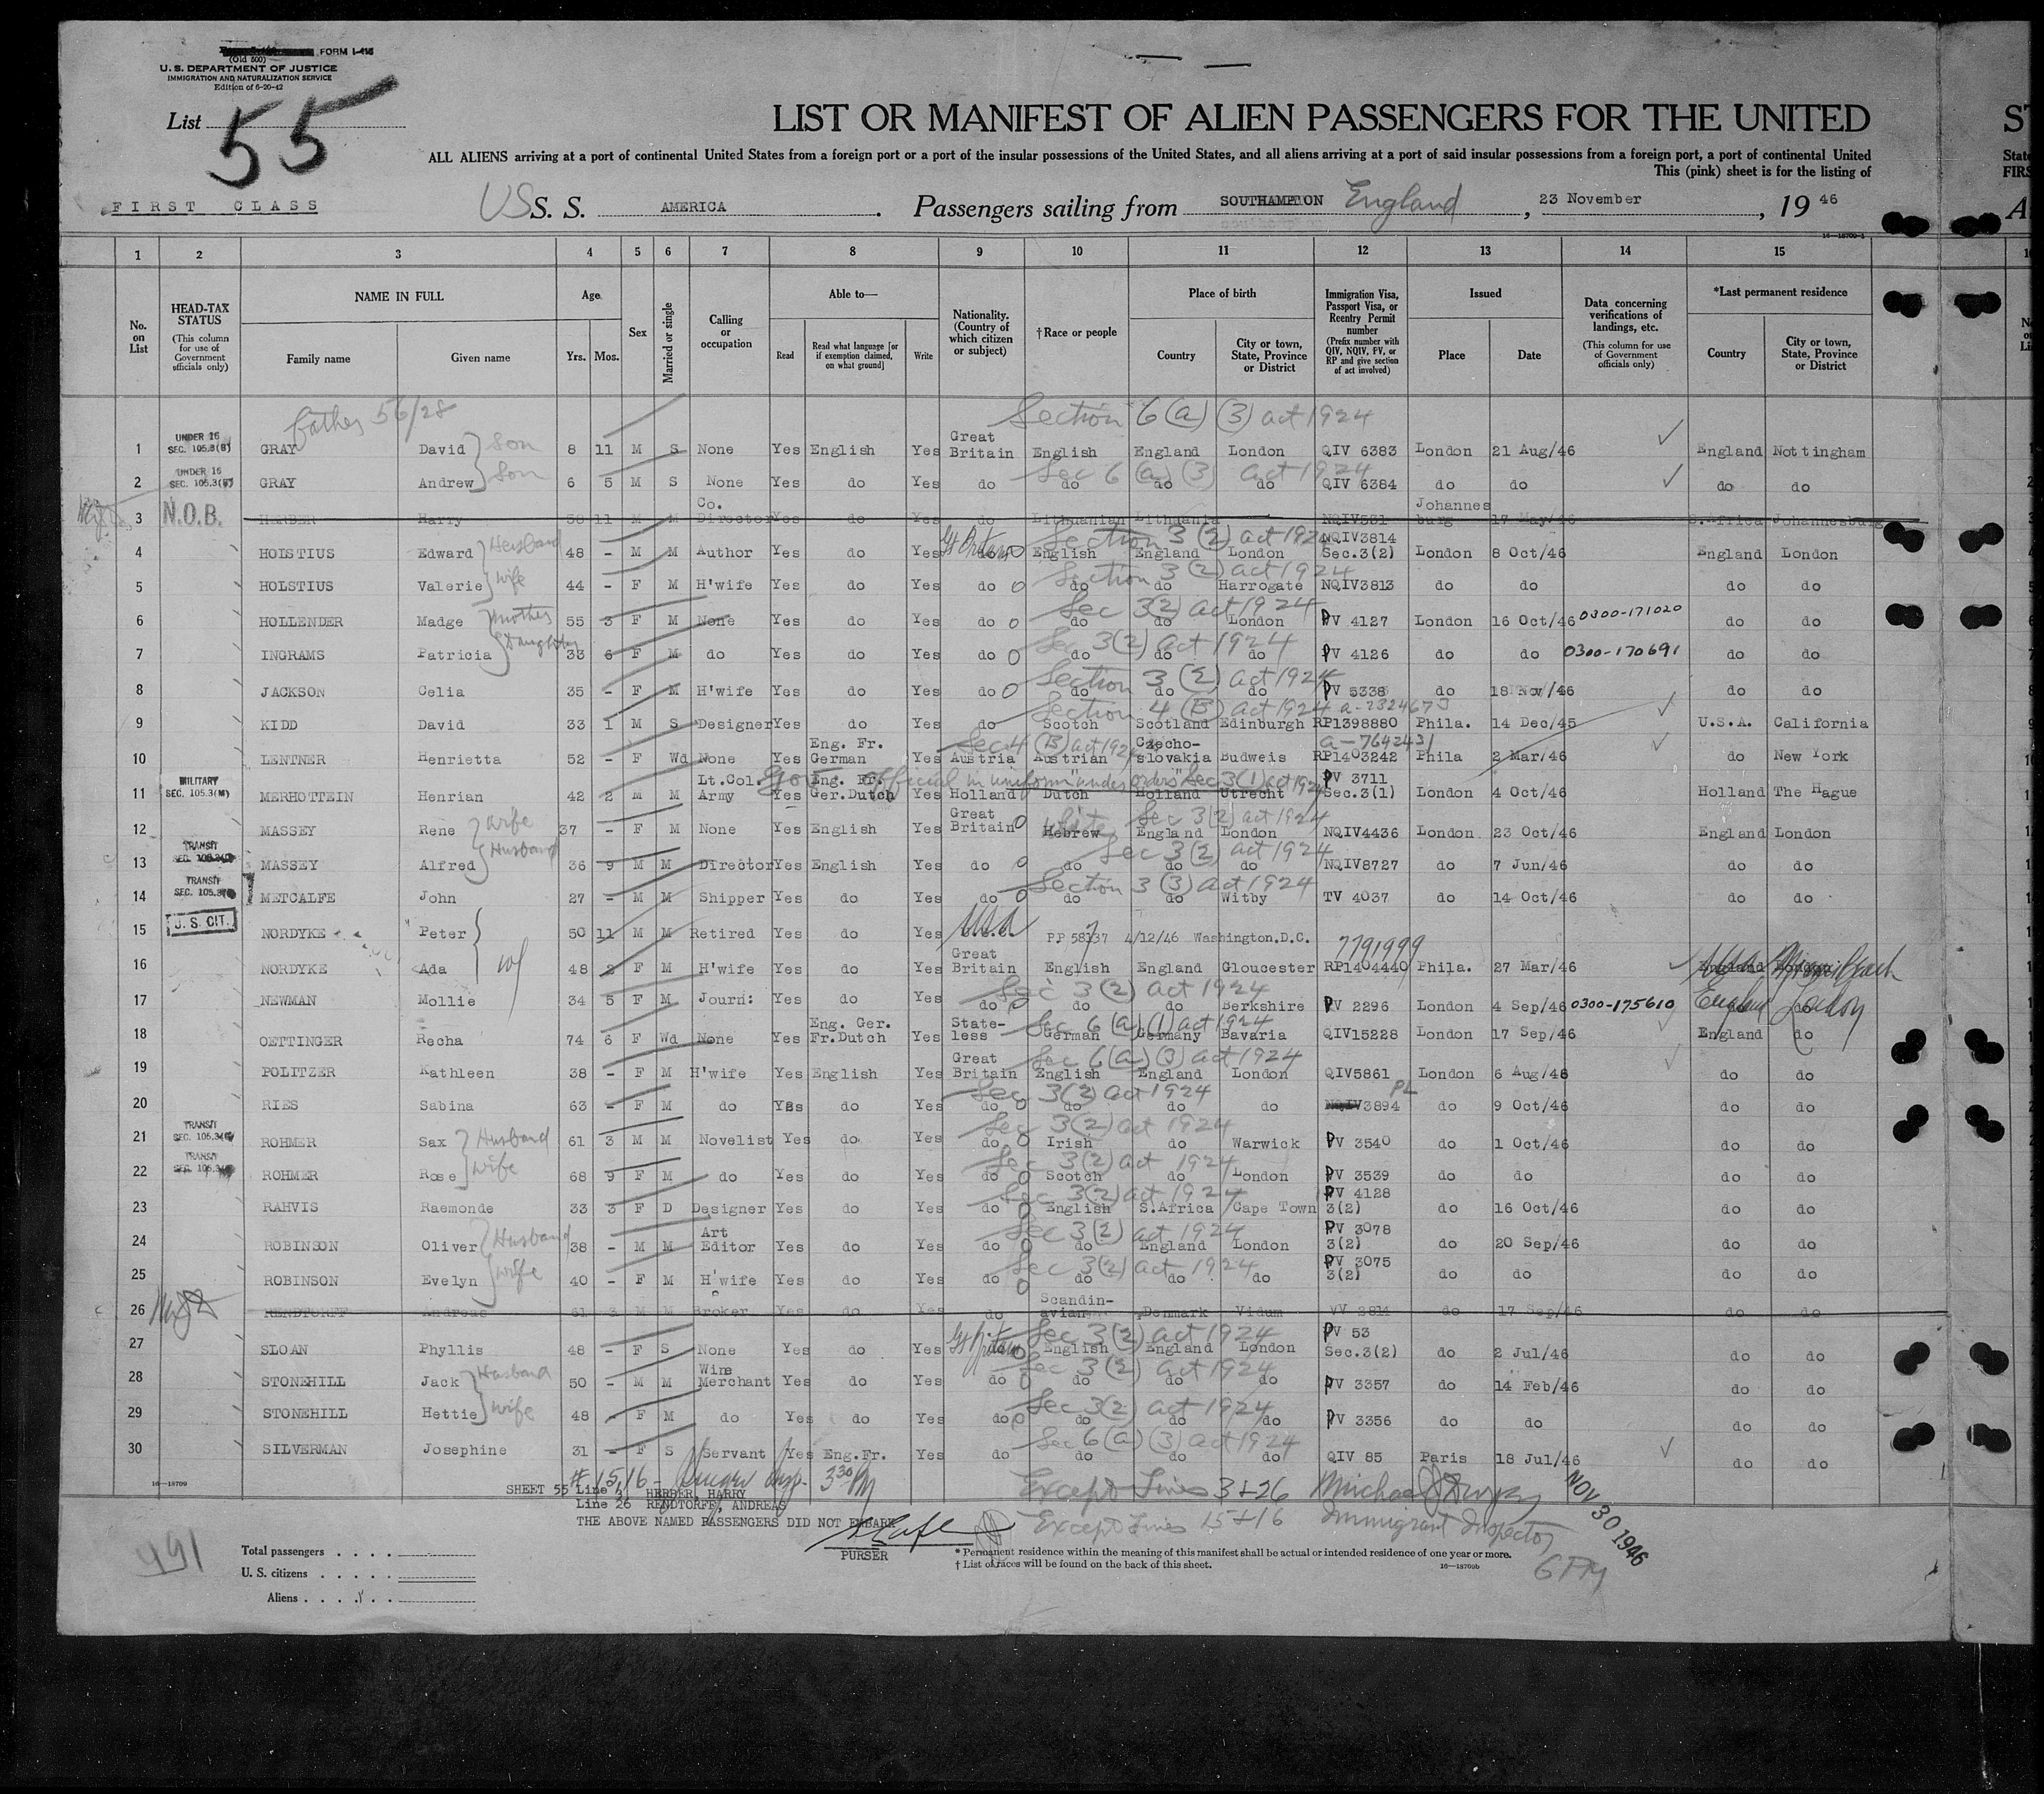 FORM I-415
(Old 500)
U. S. DEPARTMENT OF JUSTICE
IMMIGRATION AND NATURALIZATION SERVICE
Edition of 6-20-42
List 55
LIST OR MANIFEST OF ALIEN PASSENGERS FOR THE UNITED
ST
ALL ALIENS arriving at a port of continental United States from a foreign port or a port of the insular possessions of the United States, and all aliens arriving at a port of said insular possessions from a foreign port, a port of continental United
State
This (pink) sheet is for the listing of
FIRS
FIRST CLASS US S. S. AMERICA. Passengers sailing from SOUTHAMPTON England, 23 November, 19 46
16—18709-1
1 2 3 4 5 6 7 8 9 10 11 12 13 14 15
No. on List
HEAD-TAX STATUS (This column for use of Government officials only)
NAME IN FULL
Family name Given name
Age Yrs. Mos.
Sex
Married or single
Calling or occupation
Able to—
Read Read what language [or if exemption claimed, on what ground] Write
Nationality. (Country of which citizen or subject)
†Race or people
Place of birth
Country City or town, State, Province or District
Immigration Visa, Passport Visa, or Reentry Permit number (Prefix number with QIV, NQIV, PV, or RP and give section of act involved)
Issued
Place Date
Data concerning verifications of landings, etc. (This column for use of Government officials only)
*Last permanent residence
Country City or town, State, Province or District
father 56/28 Section 6 (a) (3) act 1924
1 UNDER 16 SEC. 105.3(8) GRAY David son 8 11 M S None Yes English Yes Great Britain English England London QIV 6383 London 21 Aug/46 England Nottingham
Sec 6 (a) (3) act 1924
2 UNDER 16 SEC. 105.3 GRAY Andrew son 6 5 M S None Yes do Yes do do do do QIV 6384 do do do do
3 N.O.B. HERBER Harry 58 11 M M Co. Director Yes do Yes do Lithuanian Lithuania NQIV581 Johannes burg 17 May/46 S.Africa Johannesburg
Section 3 (2) act 1924
4 HOLSTIUS Edward Husband 48 - M M Author Yes do Yes Gt Britain do English England London NQIV3814 Sec.3(2) London 8 Oct/46 England London
Section 3 (2) act 1924
5 HOLSTIUS Valerie wife 44 - F M H'wife Yes do Yes do do do Harrogate NQIV3813 do do do do
Sec 3(2) act 1924
6 HOLLENDER Madge mother 55 3 F M None Yes do Yes do do do London PV 4127 London 16 Oct/46 0300-171020 do do
Sec 3(2) act 1924
7 INGRAMS Patricia Daughter 33 6 F M do Yes do Yes do do do do PV 4126 do do 0300-170691 do do
Section 3 (2) act 1924
8 JACKSON Celia 35 - F M H'wife Yes do Yes do do do do PV 5338 do 18 Nov/46 do do
Section 4 (B) act 1924
9 KIDD David 33 1 M S Designer Yes do Yes do Scotch Scotland Edinburgh RP1398880 Phila. 14 Dec/45 U.S.A. California
Sec 4 (B) act 1924 a-7642431
10 LENTNER Henrietta 52 - F Wd None Yes Eng. Fr. German Yes Austria Austrian Czecho- slovakia Budweis RP1403242 Phila 2 Mar/46 do New York
Gov official in uniform "under orders" Sec 3(1) act 1924
11 MILITARY SEC. 105.3(M) MERHOTTEIN Henrian 42 2 M M Lt.Col. Army Yes Eng. Fr. Ger.Dutch Yes Holland Dutch Holland Utrecht PV 3711 Sec.3(1) London 4 Oct/46 Holland The Hague
Sec 3(2) act 1924
12 MASSEY Rene wife 37 - F M None Yes English Yes Great Britain Hebrew White England London NQIV4436 London 23 Oct/46 England London
Sec 3(2) act 1924
13 TRANSIT MASSEY Alfred Husband 36 9 M M Director Yes English Yes do do do do NQIV8727 do 7 Jun/46 do do
Section 3 (3) act 1924
14 TRANSIT SEC. 105.3 METCALFE John 27 - M M Shipper Yes do Yes do do do Witby TV 4037 do 14 Oct/46 do do
15 U. S. CIT. NORDYKE Peter 50 11 M M Retired Yes do Yes USA PP 58137 4/12/46 Washington.D.C.
16 NORDYKE Ada 48 2 F M H'wife Yes do Yes Great Britain English England Gloucester 7791999 RP1404440 Phila. 27 Mar/46 England Miami Beach
Sec 3(2) act 1924
17 NEWMAN Mollie 34 5 F M Journ: Yes do Yes do do do Berkshire PV 2296 London 4 Sep/46 0300-175610 England London
Sec 6(a)(1) act 1924
18 OETTINGER Recha 74 6 F Wd None Yes Eng. Ger. Fr.Dutch Yes State- less German Germany Bavaria QIV15228 London 17 Sep/46 England do
Sec 6(a)(3) act 1924
19 POLITZER Kathleen 38 - F M H'wife Yes English Yes Great Britain English England London QIV5861 London 6 Aug/46 do do
Sec 3(2) act 1924
20 RIES Sabina 63 - F M do Yes do Yes do do do do NQIV3894 do 9 Oct/46 do do
Sec 3(2) act 1924
21 TRANSIT SEC. 105.3 ROHMER Sax Husband 61 3 M M Novelist Yes do Yes do Irish do Warwick PV 3540 do 1 Oct/46 do do
Sec 3(2) act 1924
22 TRANSIT SEC. 105.3 ROHMER Rose wife 68 9 F M do Yes do Yes do Scotch do London PV 3539 do do do do
Sec 3(2) act 1924
23 RAHVIS Raemonde 33 3 F D Designer Yes do Yes do English S.Africa Cape Town PV 4128 3(2) do 16 Oct/46 do do
Sec 3(2) act 1924
24 ROBINSON Oliver Husband 38 - M M Art Editor Yes do Yes do do England London PV 3078 3(2) do 20 Sep/46 do do
Sec 3(2) act 1924
25 ROBINSON Evelyn wife 40 - F M H'wife Yes do Yes do do do do PV 3075 3(2) do do do do
26 RENDTORFF Andreas 61 3 M M Broker Yes do Yes do Scandin- avian Denmark Vidum VV 2814 do 17 Sep/46 do do
Sec 3(2) act 1924
27 SLOAN Phyllis 48 - F S None Yes do Yes Gt Britain English England London PV 53 Sec.3(2) do 2 Jul/46 do do
Sec 3(2) act 1924
28 STONEHILL Jack Husband 50 - M M Wine Merchant Yes do Yes do do do do PV 3357 do 14 Feb/46 do do
Sec 3(2) act 1924
29 STONEHILL Hettie wife 48 - F M do Yes do Yes do do do do PV 3356 do do do do
Sec 6(a)(3) act 1924
30 SILVERMAN Josephine 31 - F S Servant Yes Eng.Fr. Yes do do do do QIV 85 Paris 18 Jul/46 do do
16—18709
# 15,16 - 3 30 PM
SHEET 55 Line HERBER, HARRY
Line 26 RENDTORFF, ANDREAS
THE ABOVE NAMED PASSENGERS DID NOT EMBARK
PURSER
Except Lines 3 & 26 Michael
Except Lines 15 & 16 Immigrant Inspector
NOV 30 1946
6 PM
491
Total passengers
U. S. citizens
Aliens
* Permanent residence within the meaning of this manifest shall be actual or intended residence of one year or more.
† List of races will be found on the back of this sheet.
16—18709b